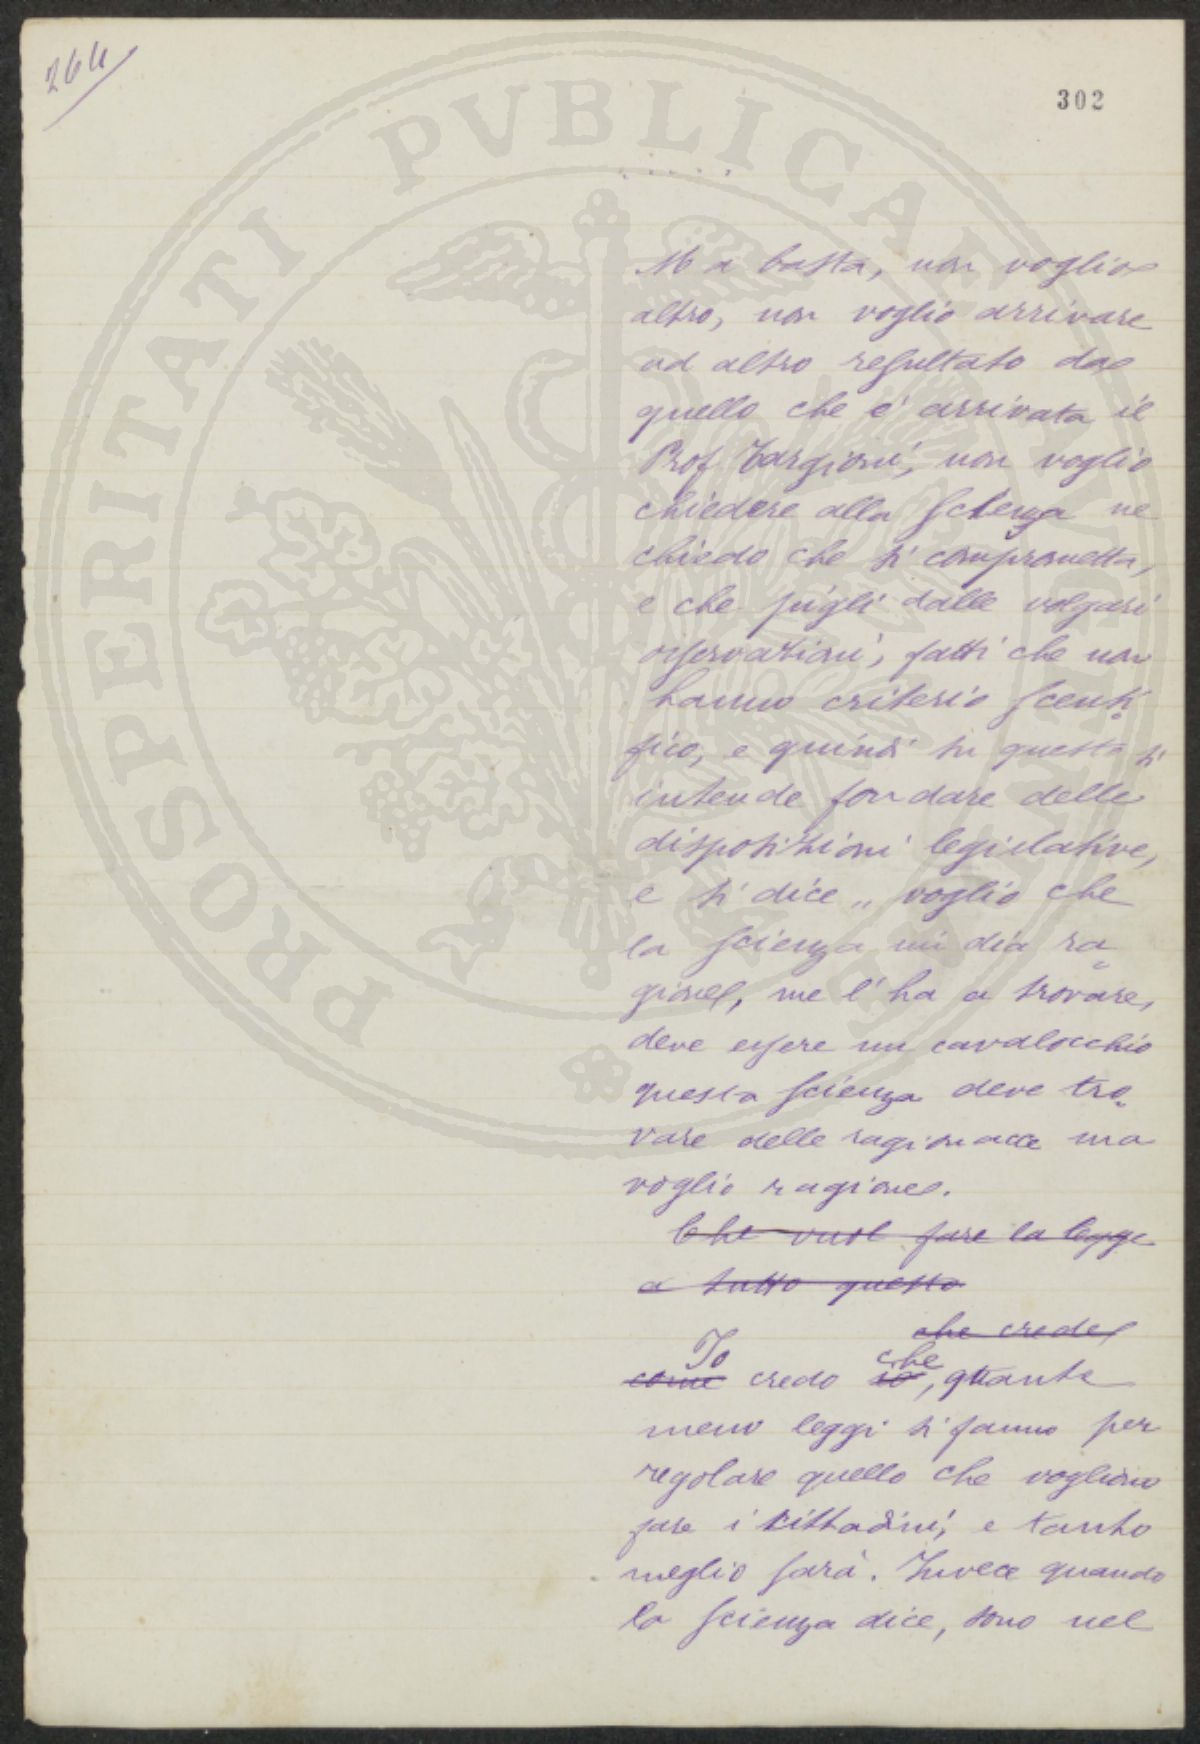 264
302
. . . . .
Ma basta, non voglio
altro, non voglio arrivare
ad altro resultato da
quello che è arrivata il
Prof Targioni, non voglio
chiedere alla Scienza ne
chiedo che si comprometta,
e che pigli dalle volgari
osservazioni, fatti che non
hanno criterio scenti
fico, e quindi su questa si
intende fondare delle
disposizioni legislative,
e si dice „ voglio che
la scienza mi dia ra
gione, me l'ha a trovare,
deve essere un cavalocchio
questa scienza deve tro
vare delle ragionacce ma
voglio ragione.
Che vuol fare la legge
a tutto questo
che crede
Io che
come credo io, quante
meno leggi si fanno per
regolare quello che vogliono
fare i cittadini, e tanto
meglio sarà. Invece quando
la scienza dice, sono nel
PROSPERITATI PVBLICAE